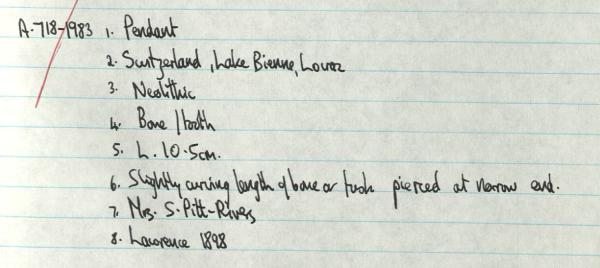 A.718-1983 1. Pendant
2. Switzerland, Lake Bienne,
3. Neolithic
4. Bone / tooth
5. L. 10.5cm.
6. Slightly curving length of bone or tusk pierced at narrow end.
7. Mrs. S. Pitt-Rivers
8. Lawrence 1898